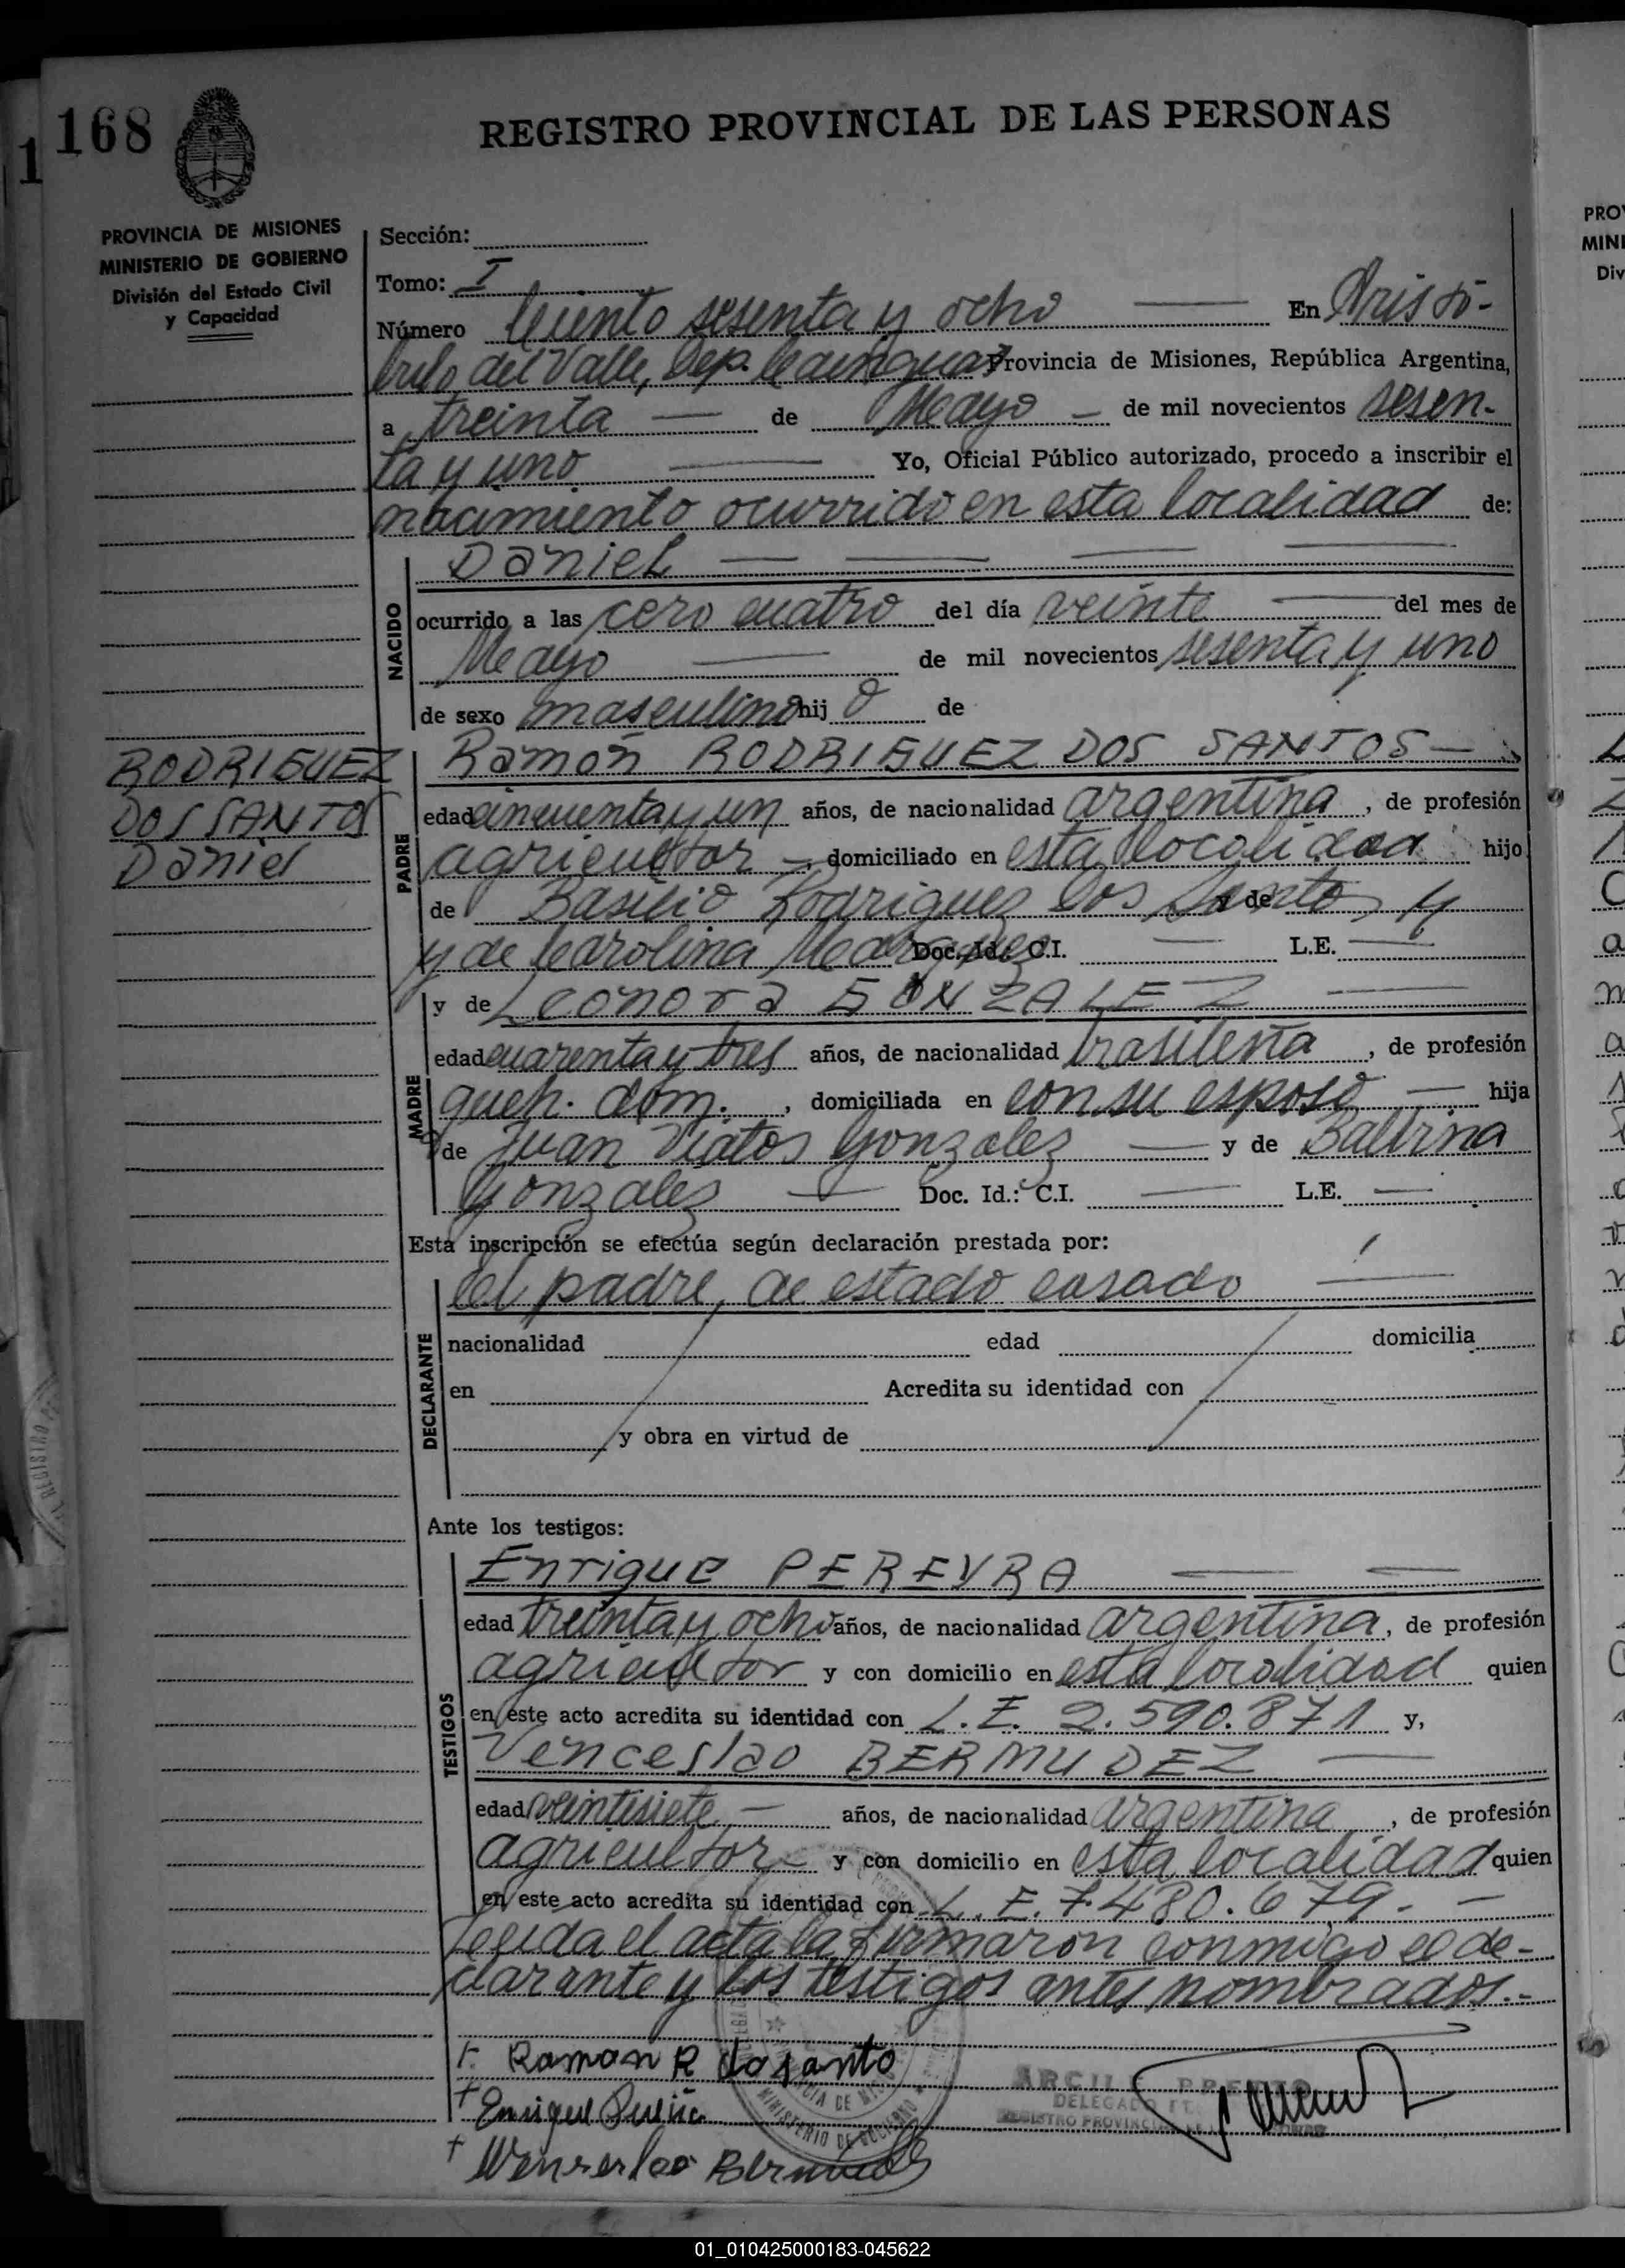 168
REGISTRO PROVINCIAL DE LAS PERSONAS
PROVINCIA DE MISIONES
MINISTERIO DE GOBIERNO
División del Estado Civil
y Capacidad
Sección:
Tomo: I
Número Ciento sesenta y ocho En Aristó-
bulo del Valle, Dep. Cainguas Provincia de Misiones, República Argentina,
a treinta — de Mayo — de mil novecientos sesen-
ta y uno — Yo, Oficial Público autorizado, procedo a inscribir el
nacimiento ocurrido en esta localidad de:
NACIDO
Daniel — — — —
ocurrido a las cero cuatro del día veinte — del mes de
Mayo — de mil novecientos sesenta y uno
de sexo masculino hij o de
RODRIGUEZ
DOS SANTOS
Daniel
PADRE
Ramón RODRIGUEZ DOS SANTOS —
edad cincuenta y un años, de nacionalidad argentina, de profesión
agricultor —, domiciliado en esta localidad hijo
de Basilio Rodriguez Dos Santos y y de
y de Carolina Marquez Doc. Id.: C.I. — L.E. —
MADRE
y de Leonora GONZALEZ —
edad cuarenta y tres años, de nacionalidad brasileña, de profesión
queh. dom., domiciliada en con su esposo — hija
de Juan Viatos Gonzalez — y de Balbina
Gonzalez — Doc. Id.: C.I. — L.E. —
Esta inscripción se efectúa según declaración prestada por:
DECLARANTE
el padre, de estado casado —
nacionalidad edad domicilia
en Acredita su identidad con
y obra en virtud de
Ante los testigos:
TESTIGOS
Enrique PEREYRA — —
edad treinta y ocho años, de nacionalidad argentina, de profesión
agricultor y con domicilio en esta localidad quien
en este acto acredita su identidad con L.E. 2.590.871 y,
Venceslao BERMUDEZ —
edad veintisiete — años, de nacionalidad argentina, de profesión
agricultor — y con domicilio en esta localidad quien
en este acto acredita su identidad con L.E. 7.480.679. —
Leida el acta la firmaron conmigo el de-
clarante y los testigos antes nombrados.-
Raman R dosanto
Enrique
Wenserlao Bermudez
DELEGADO
REGISTRO PROVINCIAL
MINISTERIO DE GOBIERNO
01_010425000183-045622